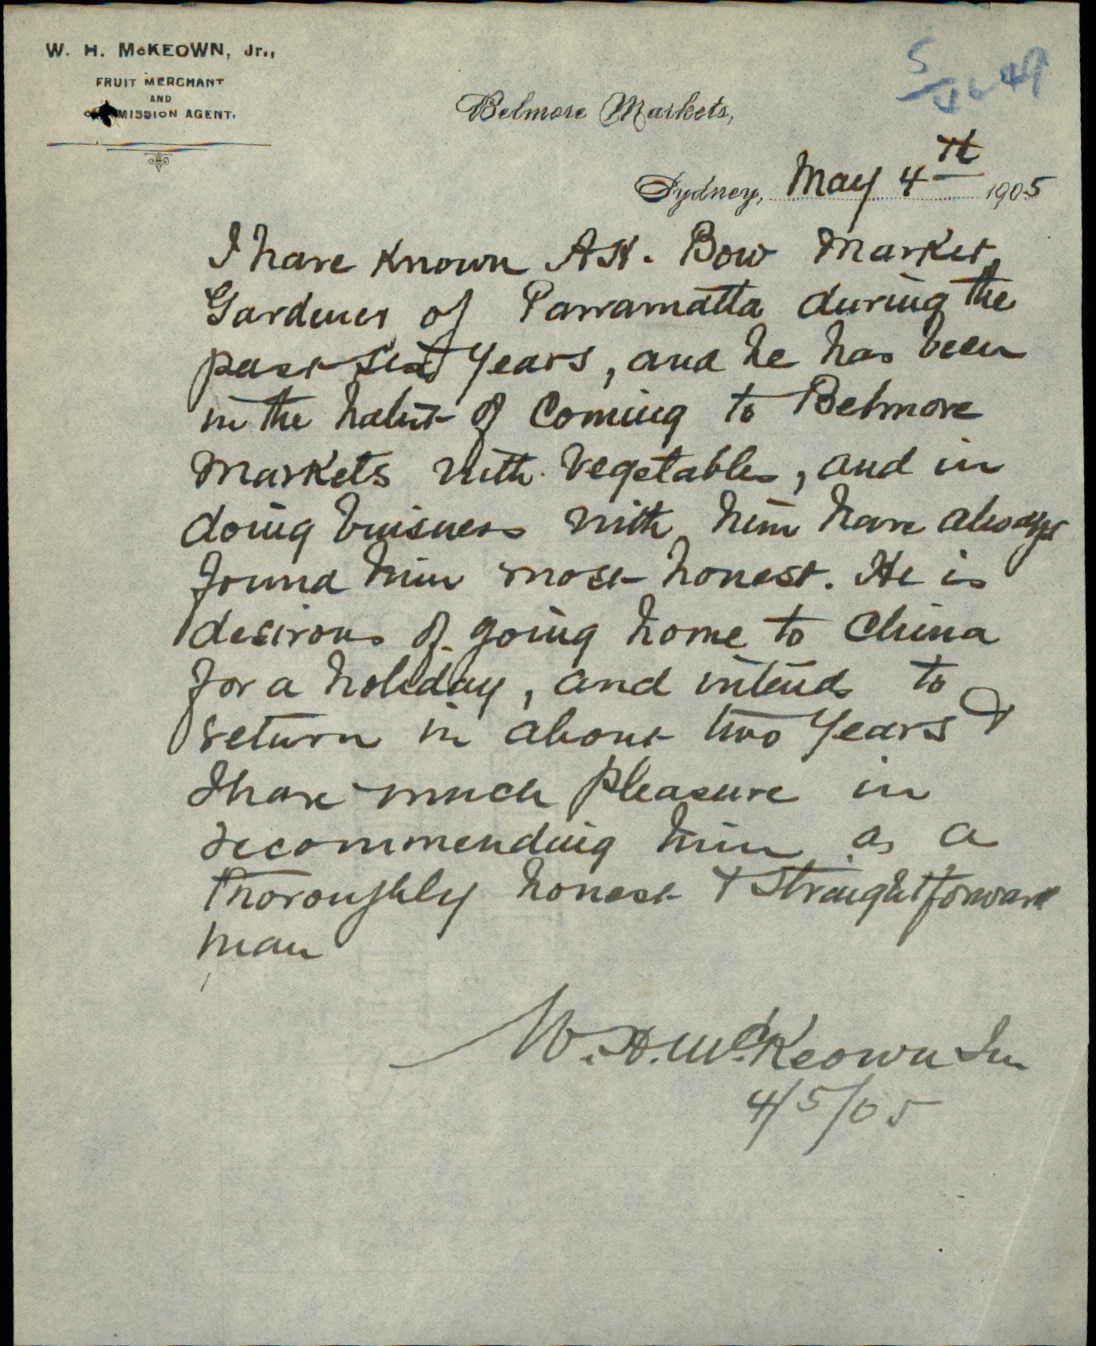 W. H. McKEOWN, Jr.,
FRUIT MERCHANT
AND
COMMISSION AGENT.
Belmore Markets,
Sydney, May 4th 1905
I have known Ah. Bow Market
Gardener of Parramatta during the
past six years, and he has been
in the habit of coming to Belmore
Markets with vegetables, and in
doing buisness with him have always
found him most honest. He is
desirous of going home to China
for a holiday, and intends to
return in about two years &
I have much pleasure in
recommending him as a
thoroughly honest & straightforward
man
W. H. McKeown Jun
4/5/05